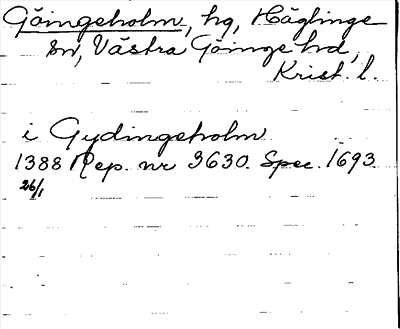 Göingeholm, hg, Häglinge
sn, Västra Göinge hd,
Krist. l.
i Gydingeholm
1388 Rep. nr 3630. Spec. 1693.
26/1